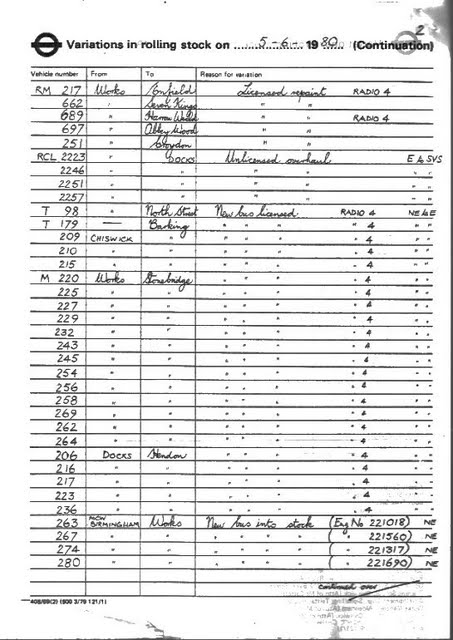 2
Variations in rolling stock on 5-6- 1980 (Continuation)
Vehicle number From To Reason for variation
RM 217 Works Enfield Licensed repaint RADIO 4
662 " Seven Kings " "
689 " Harrow Weald " " RADIO 4
697 " Abbey Wood " "
251 " Croydon " "
RCL 2223 " DOCKS Unlicensed overhaul E & SVS
2246 " " " " " "
2251 " " " " " "
2257 " " " " " "
T 98 " North Street New bus licensed RADIO 4 NE & E
T 179 — Barking " " " " 4 " "
209 CHISWICK " " " " " 4 " "
210 " " " " " " 4 " "
215 " " " " " " 4 " "
M 220 Works Stonebridge " " " " 4 " "
225 " " " " " " 4 " "
227 " " " " " " 4 " "
229 " " " " " " 4 " "
232 " " " " " " 4 " "
243 " " " " " " 4 " "
245 " " " " " " 4 " "
254 " " " " " " 4 " "
256 " " " " " " 4 " "
258 " " " " " " 4 " "
269 " " " " " " 4 " "
262 " " " " " " 4 " "
264 " " " " " " 4 " "
206 DOCKS Hendon " " " " 4 " "
216 " " " " " " 4 " "
217 " " " " " " 4 " "
223 " " " " " " 4 " "
236 " " " " " " 4 " "
263 MCW BIRMINGHAM Works New bus into stock (Eng No 221018) NE
267 " " " " " ( " 221560) NE
274 " " " " " ( " 221317) NE
280 " " " " " ( " 221690) NE
continued over
408/69(2) (500 3/79 121/1)